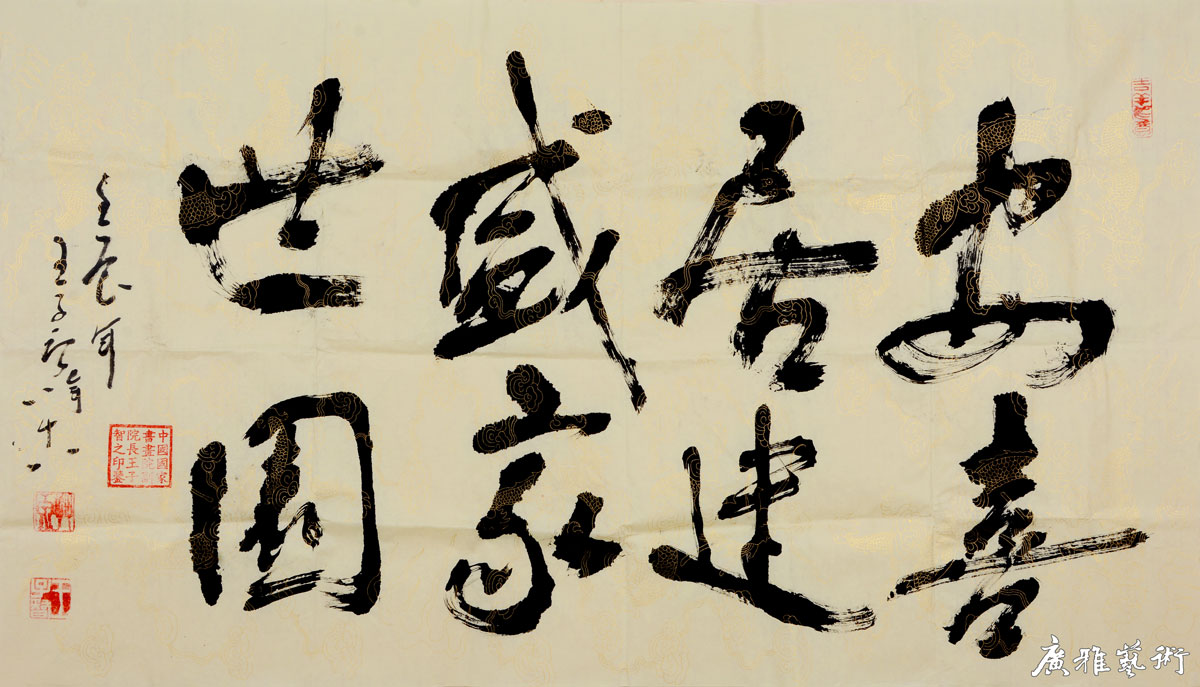 安居盛世
喜建家園
壬辰年
王子智
中國國家
書畫院
院長王子
智之印鑒
廣雅藝術